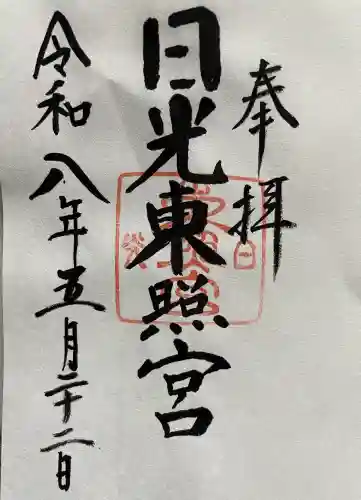 奉拝
日光東照宮
令和八年五月二十二日